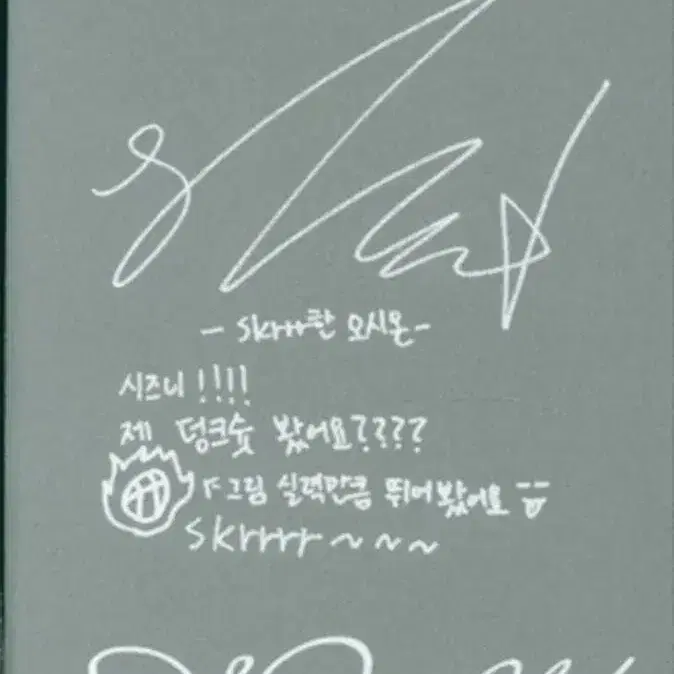 - skrrr한 오시온-
시즈니 !!!!
제 덩크슛 봤어요????
그림 실력만큼 뛰어봤어요
skrrrr ~ ~ ~